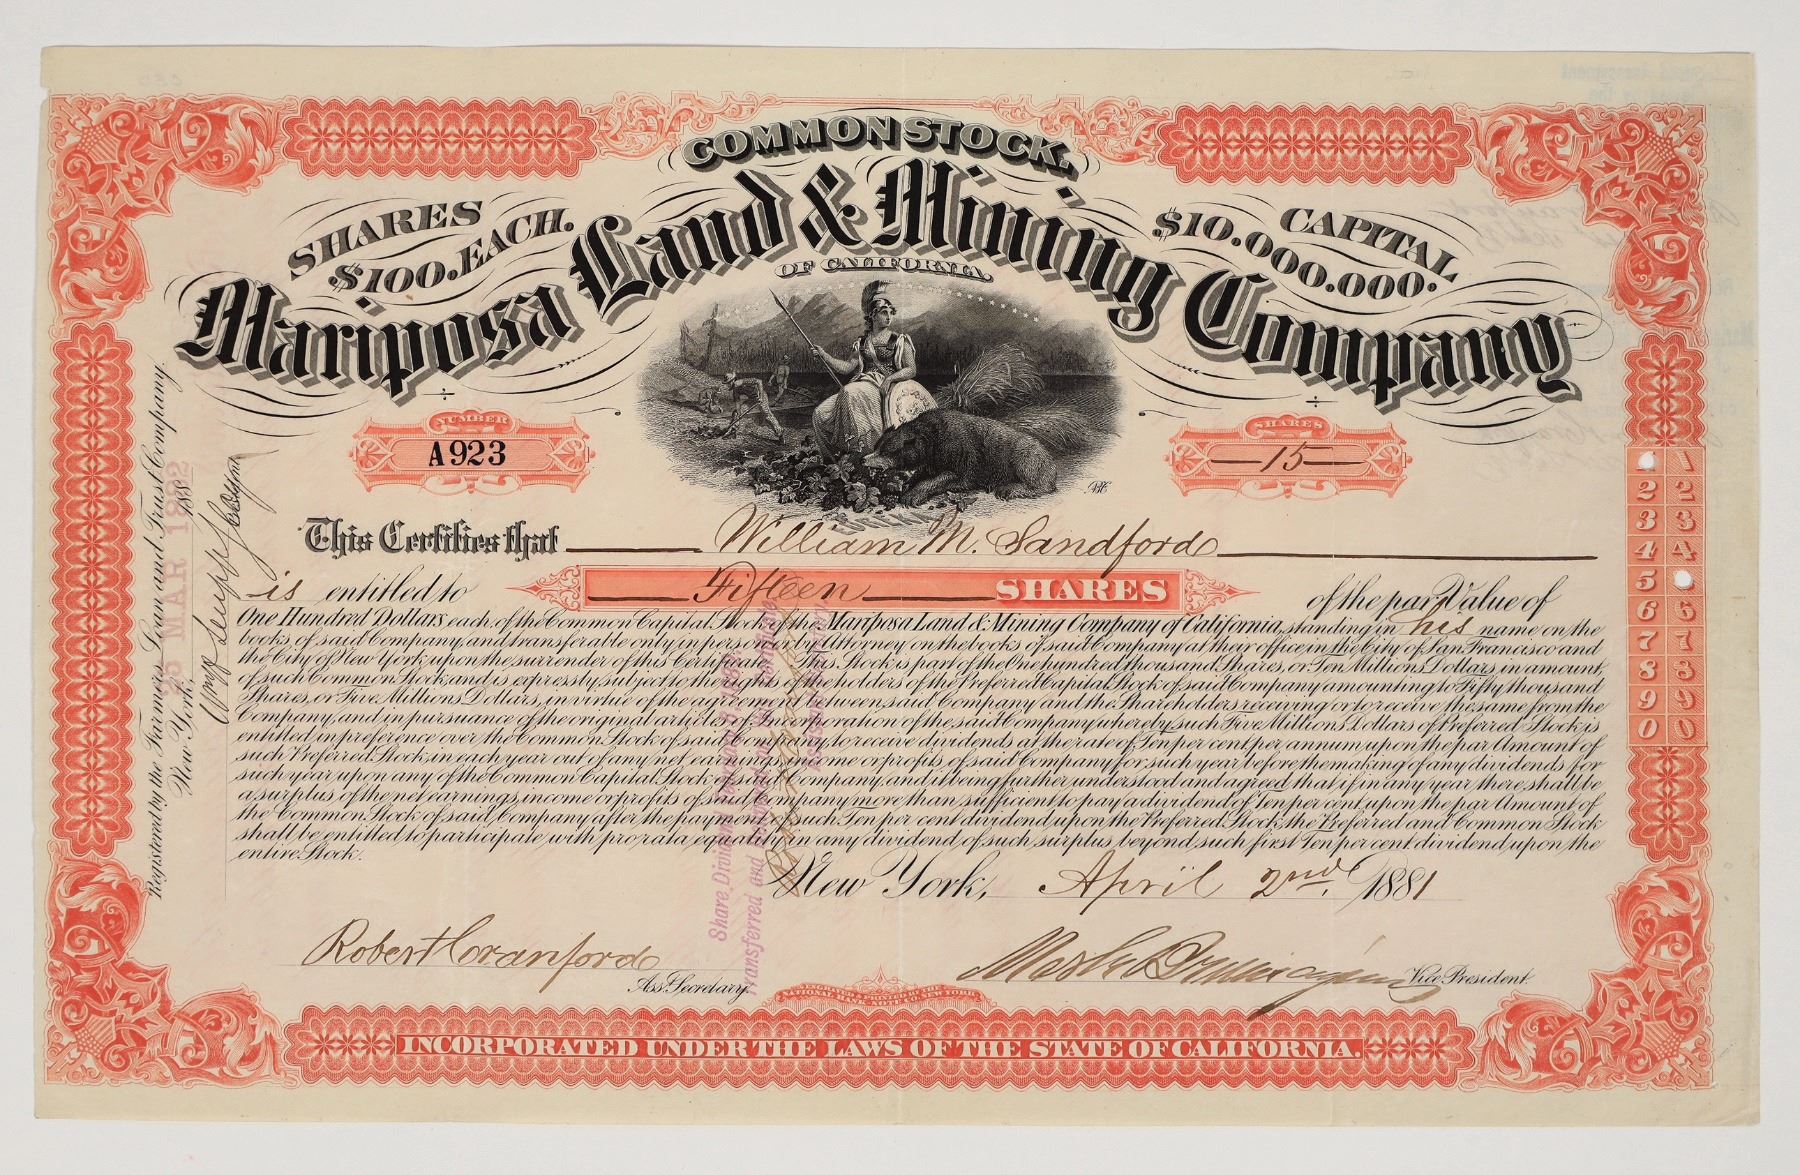 COMMON STOCK.
SHARES
$100. EACH.
CAPITAL
$10.000.000.
Mariposa Land & Mining Company
OF CALIFORNIA.
NUMBER
A923
SHARES
15
This Certifies that William M. Sandford
is entitled to Fifteen SHARES of the par Value of
One Hundred Dollars each, of the Common Capital Stock of the Mariposa Land & Mining Company of California, standing in his name on the
books of said Company, and transferable only in person or by Attorney on the books of said Company at their office in the City of San Francisco and
the City of New York, upon the surrender of this Certificate. This Stock is part of the One hundred thousand Shares, or Ten Millions Dollars in amount,
of such Common Stock, and is expressly subject to the rights of the holders of the Preferred Capital Stock of said Company amounting to Fifty thousand
Shares, or Five Millions Dollars, in virtue of the agreement between said Company and the Shareholders receiving or to receive the same from the
Company, and in pursuance of the original articles of Incorporation of the said Company whereby such Five Millions Dollars of Preferred Stock is
entitled in preference over the Common Stock of said Company, to receive dividends at the rate of Ten per cent. per annum upon the par Amount of
such Preferred Stock in each year out of any net earnings, income or profits of said Company for such year before the making of any dividends for
such year upon any of the Common Capital Stock of said Company, and it being further understood and agreed that if in any year there shall be
a surplus of the net earnings, income or profits of said Company more than sufficient to pay a dividend of Ten per cent. upon the par Amount of
the Common Stock of said Company after the payment of such Ten per cent dividend upon the Preferred Stock, the Preferred and Common Stock
shall be entitled to participate with pro rata equality in any dividend of such surplus beyond such first Ten per cent dividend upon the
entire Stock.
New York, April 2nd. 1881
Robert Cranford
Asst. Secretary
Vice President.
ENGRAVED & PRINTED BY THE
NATIONAL BANK NOTE CO. NEW YORK
INCORPORATED UNDER THE LAWS OF THE STATE OF CALIFORNIA.
Registered by the Farmers Loan and Trust Company.
New York, 188
25 MAR 1882
Share Dividend
Transferred and
1
2 2
3 3
4 4
5
6 6
7 7
8 8
9 9
0 0